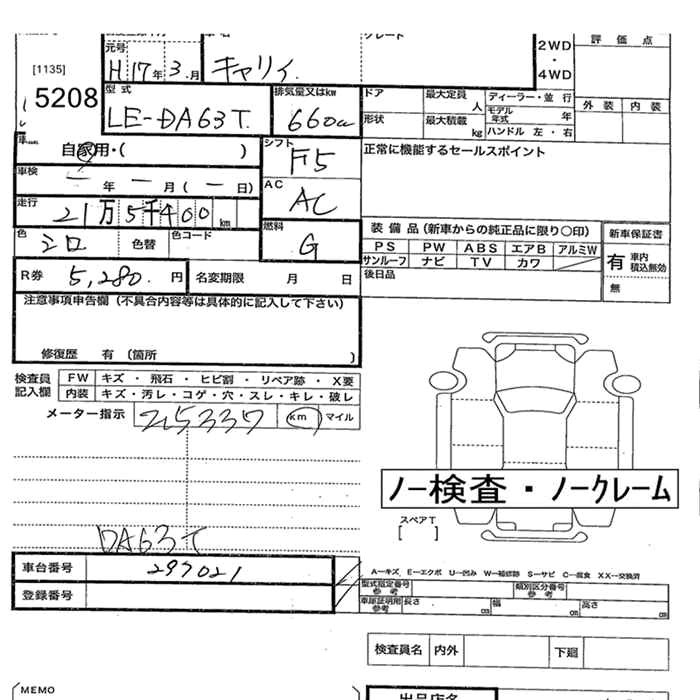 元号
H17年3月
キャリィ
グレード
2WD
・
4WD
評 価 点
外 装 内 装
[1135]
5208
型 式
LE-DA63T
排気量又はkw
660cc
ドア
形状
最大定員
人
最大積載
kg
ディーラー・並 行
モデル年式 年
ハンドル 左・右
自家用・( )
シフト
F5
正常に機能するセールスポイント
車検
一 年 一 月 ( 一 日)
AC
AC
走行
21万5千400km
燃料
G
装 備 品 (新車からの純正品に限り○印)
PS PW ABS エアB アルミW
サンルーフ ナビ TV カワ
後日品
新車保証書
有 車内積込無効
無
色
シロ
色替
色コード
R券 5,280.円
名変期限 月 日
注意事項申告欄 (不具合内容等は具体的に記入して下さい)
修復歴 有 (箇所 )
検査員記入欄
FW キズ・飛石・ヒビ割・リペア跡・X要
内装 キズ・汚レ・コゲ・穴・スレ・キレ・破レ
メーター指示 215337 km マイル
ノー検査・ノークレーム
スペアT
[ ]
DA63T
車台番号 297021
登録番号
A-キズ E-エクボ U-凹み W-補修跡 S-サビ C-腐食 XX-交換済
型式指定番号参 考
類別区分番号参 考
車庫証明用参考
長さ cm 幅 cm 高さ cm
検査員名 内外 下廻
MEMO
出品店名